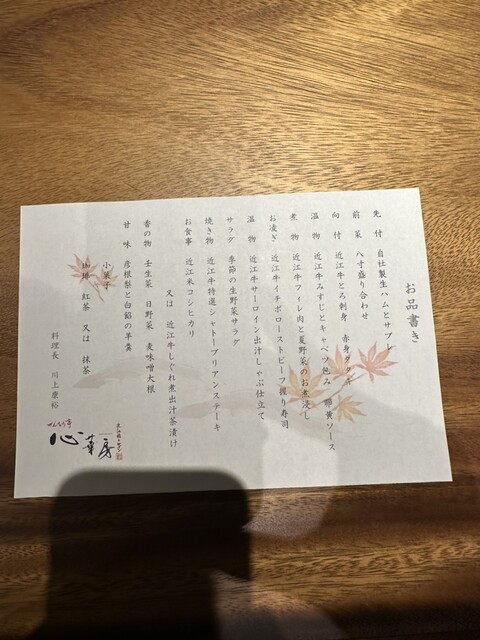 お品書き
先付 自社製生ハムとサブレ
前菜 八寸盛り合わせ
向付 近江牛とろ刺身 赤身タタキ
温物 近江牛みすじとキャベツ包み 卵黄ソース
煮物 近江牛フィレ肉と夏野菜のお煮浸し
お凌ぎ 近江牛イチボローストビーフ握り寿司
温物 近江牛サーロイン出汁しゃぶ仕立て
サラダ 季節の生野菜サラダ
焼き物 近江牛特選シャトーブリアンステーキ
お食事 近江米コシヒカリ
又は 近江牛しぐれ煮出汁茶漬け
香の物 壬生菜 日野菜 麦味噌大根
甘味 彦根梨と白餡の羊羹
小菓子
珈琲 紅茶 又は 抹茶
料理長 川上康裕
せんなり亭
心華房